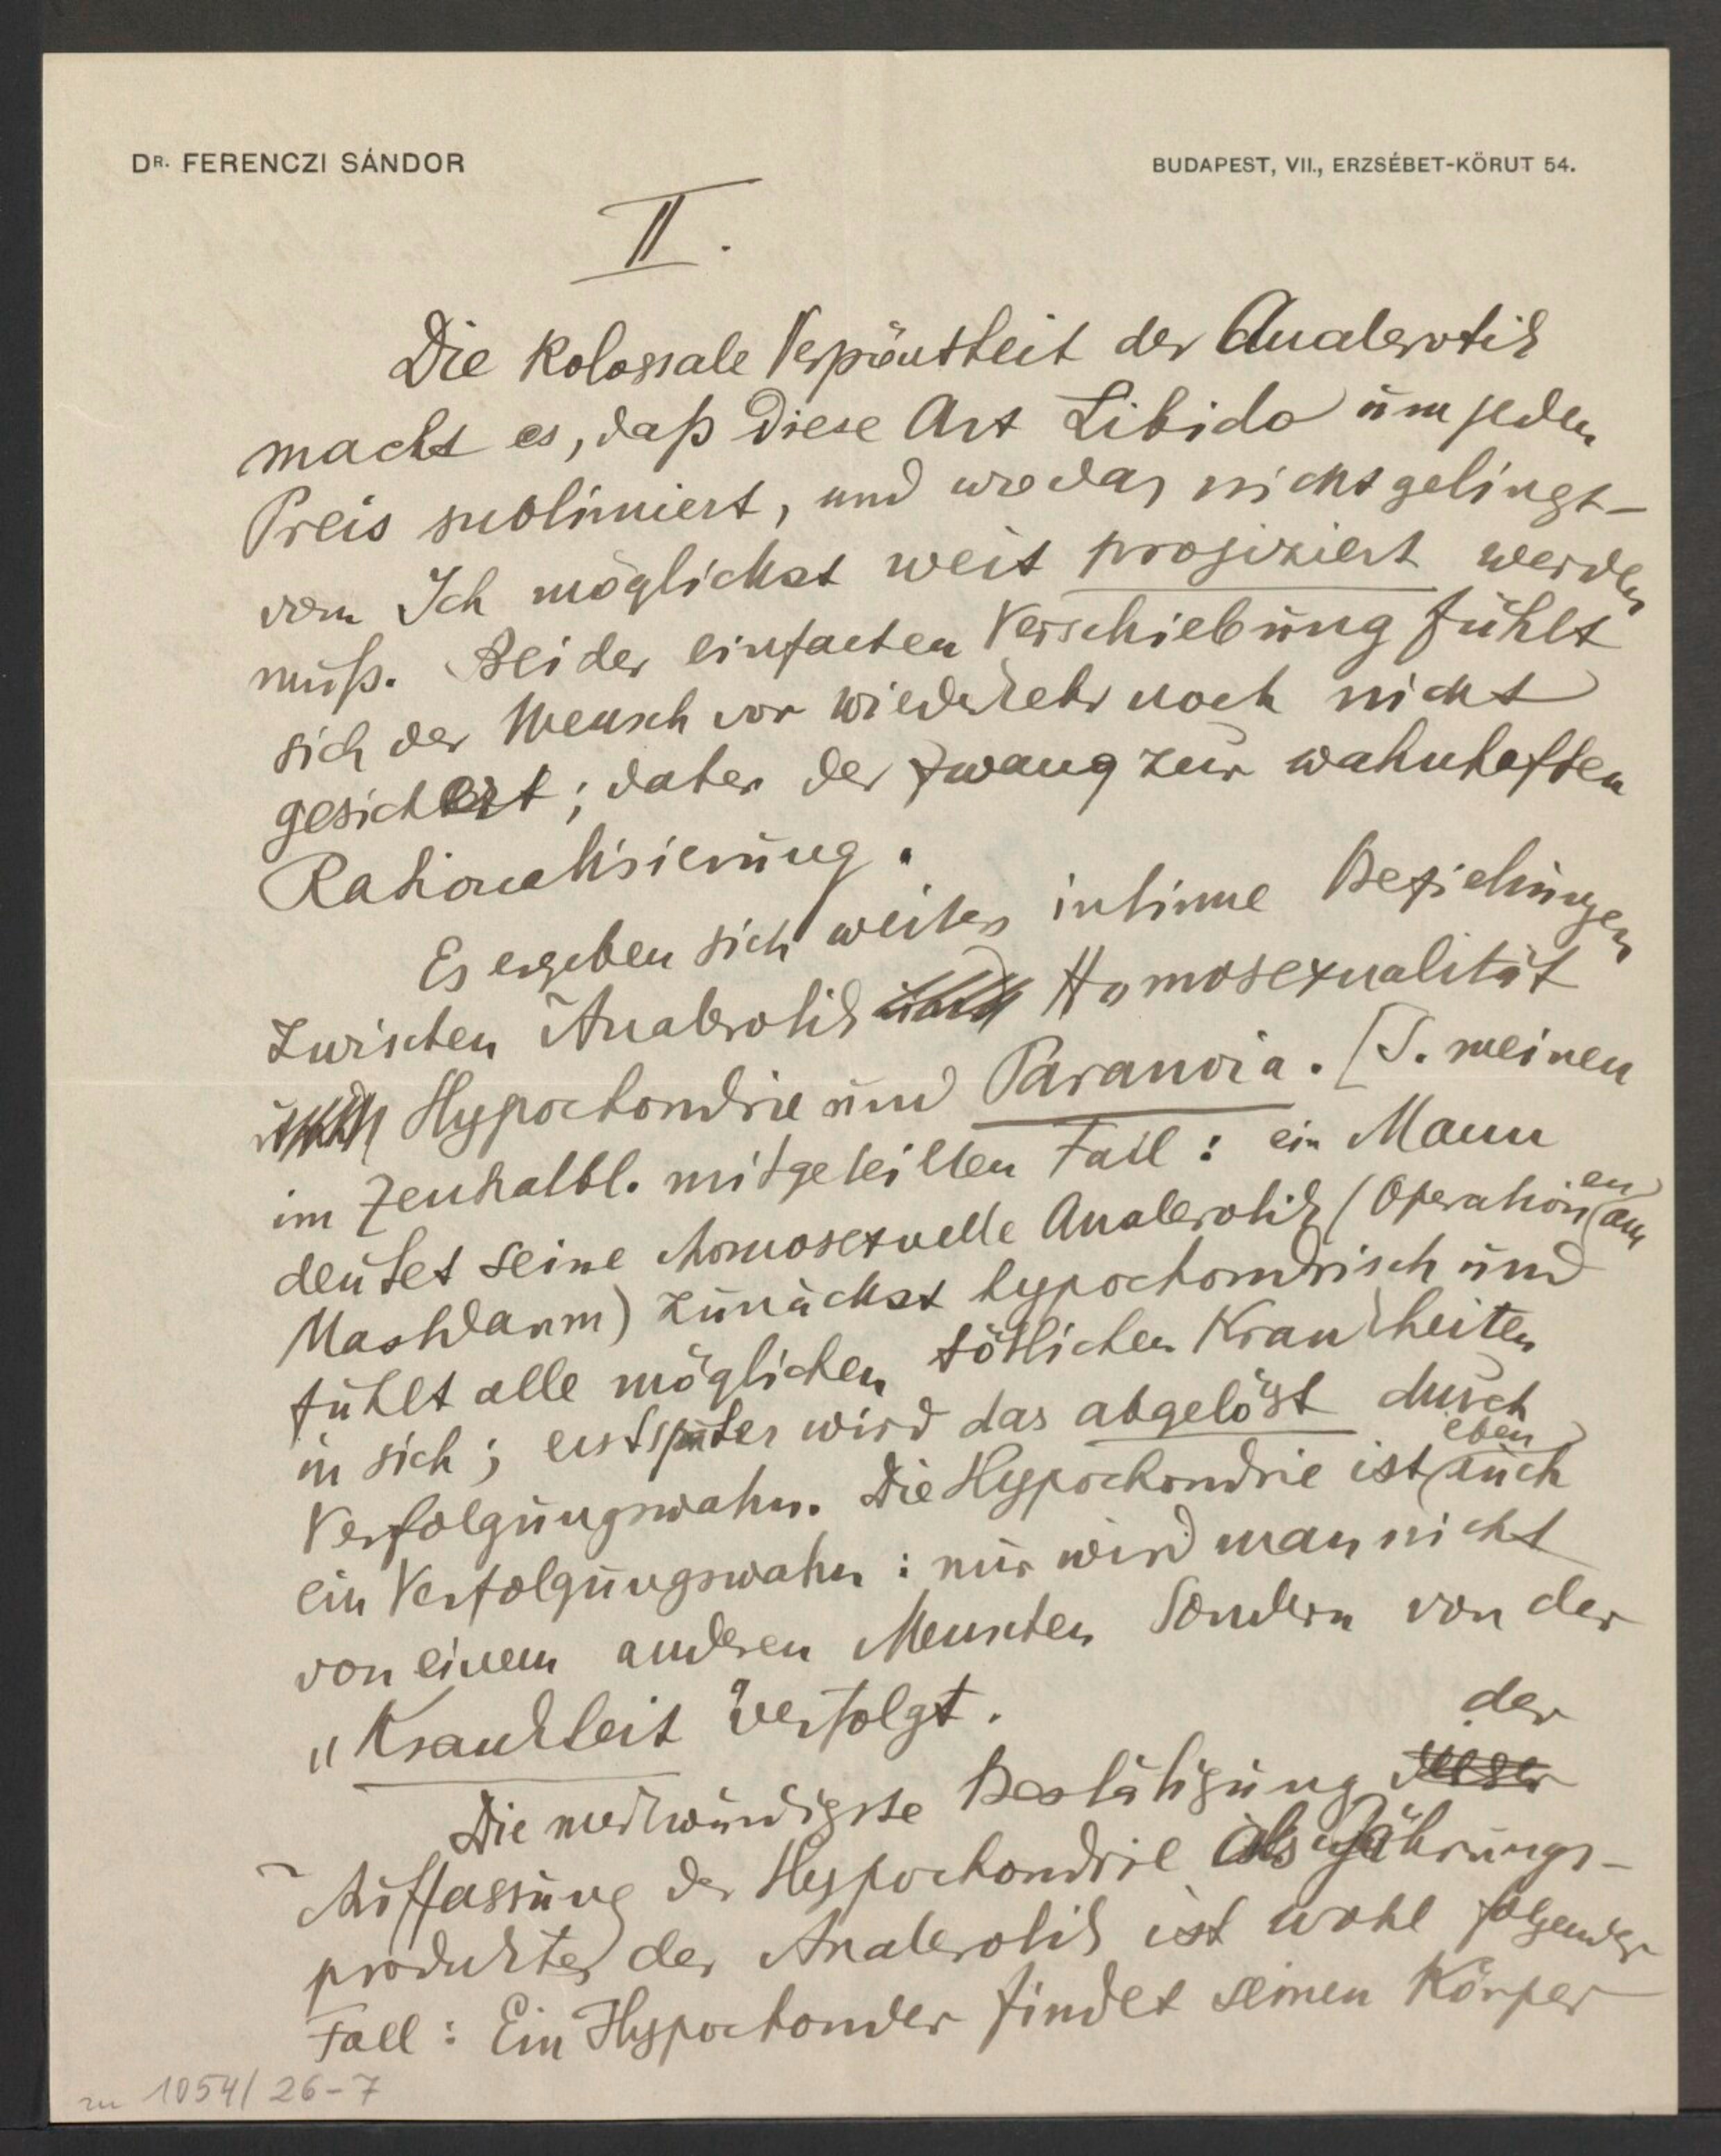 DR. FERENCZI SÁNDOR
BUDAPEST, VII., ERZSÉBET-KÖRUT 54.
II.
Die kolossale Verpöntheit der Analerotik
macht es, daß diese Art Libido um jeden
Preis sublimiert, und wo das nicht gelingt –
vom Ich möglichst weit projiziert werden
muß. Bei der einfachen Verschiebung fühlt
sich der Mensch vor Wiederkehr noch nicht
gesichert; daher der Zwang zur wahnhaften
Rationalisierung.
Es ergeben sich weiter intime Beziehungen
zwischen Analerotik Homosexualität
Hypochondrie und Paranoia. [S. meinen
im Zentralbl. mitgeteilten Fall: ein Mann
deutet seine homosexuelle Analerotik (Operationen am
Mastdarm) zunächst hypochondrisch und
fühlt alle möglichen tötlichen Krankheiten
in sich; erst später wird das abgelöst durch
Verfolgungswahn. Die Hypochondrie ist eben auch
ein Verfolgungswahn: nur wird man nicht
von einem anderen Menschen sondern von der
„Krankheit" verfolgt.
Die merkwürdigste Bestätigung der
Auffassung der Hypochondrie als Gährungs-
produktes der Analerotik ist wohl folgender
Fall: Ein Hypochonder findet seinen Körper
zu 1054/26-7